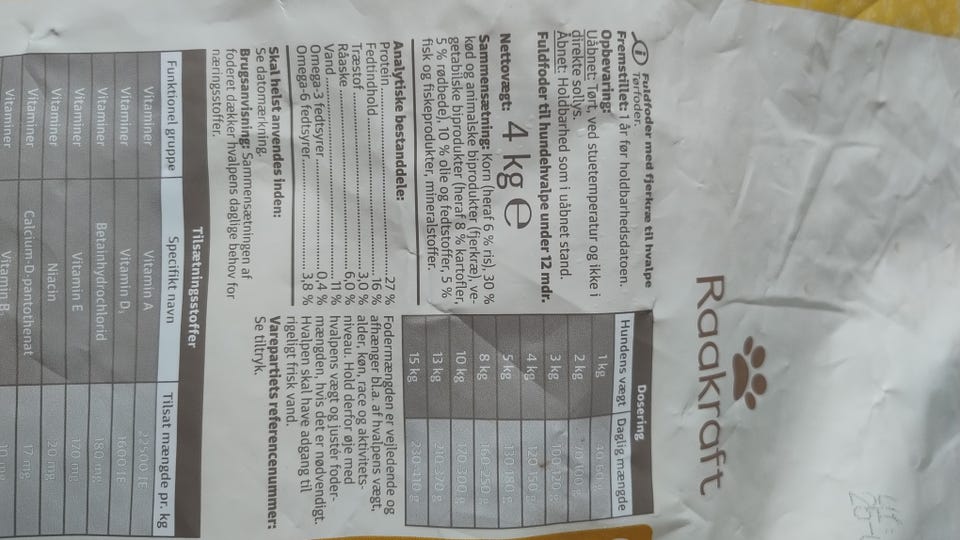 Raakraft
Fuldfoder med fjerkræ til hvalpe
Tørfoder.
Fremstillet: 1 år før holdbarhedsdatoen.
Opbevaring:
Uåbnet: Tørt, ved stuetemperatur og ikke i
direkte sollys.
Åbnet: Holdbarhed som i uåbnet stand.
Fuldfoder til hundehvalpe under 12 mdr.
Nettovægt: 4 kg e
Sammensætning: Korn (heraf 6 % ris), 30 %
kød og animalske biprodukter (fjerkræ), ve-
getabilske biprodukter (heraf 8 % kartofler,
5 % rødbede), 10 % olie og fedtstoffer, 5 %
fisk og fiskeprodukter, mineralstoffer.
Analytiske bestanddele:
Protein 27 %
Fedtindhold 16 %
Træstof 3,0 %
Råaske 6,0 %
Vand 11 %
Omega-3 fedtsyrer 0,4 %
Omega-6 fedtsyrer 3,8 %
Skal helst anvendes inden:
Se datomærkning.
Brugsanvisning: Sammensætningen af
foderet dækker hvalpens daglige behov for
næringsstoffer.
Dosering
Hundens vægt Daglig mængde
1 kg
2 kg
3 kg
4 kg
5 kg 130-180 g
8 kg
10 kg
13 kg
15 kg
Fodermængden er vejledende og
afhænger bl.a. af hvalpens vægt,
alder, køn, race og aktivitets-
niveau. Hold derfor øje med
hvalpens vægt og justér foder-
mængden, hvis det er nødvendigt.
Hvalpen skal have adgang til
rigeligt frisk vand.
Varepartiets referencenummer:
Se tiltryk.
Tilsætningsstoffer
Funktionel gruppe Specifikt navn Tilsat mængde pr. kg
Vitaminer Vitamin A 22500 IE
Vitaminer Vitamin D₃ 1600 IE
Vitaminer Betainhydrochlorid 180 mg
Vitaminer Vitamin E 170 mg
Vitaminer Niacin 20 mg
Vitaminer Calcium-D-pantothenat 17 mg
Vitaminer Vitamin 10 mg